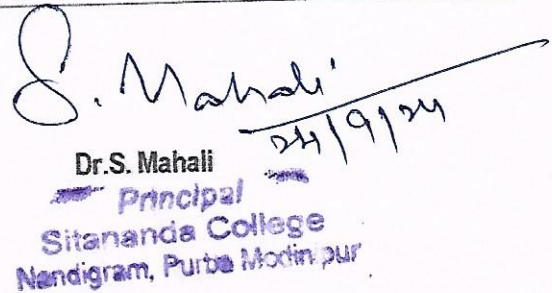 S. Mahali
24/9/24
Dr.S. Mahali
Principal
Sitananda College
Nandigram, Purba Modinipur